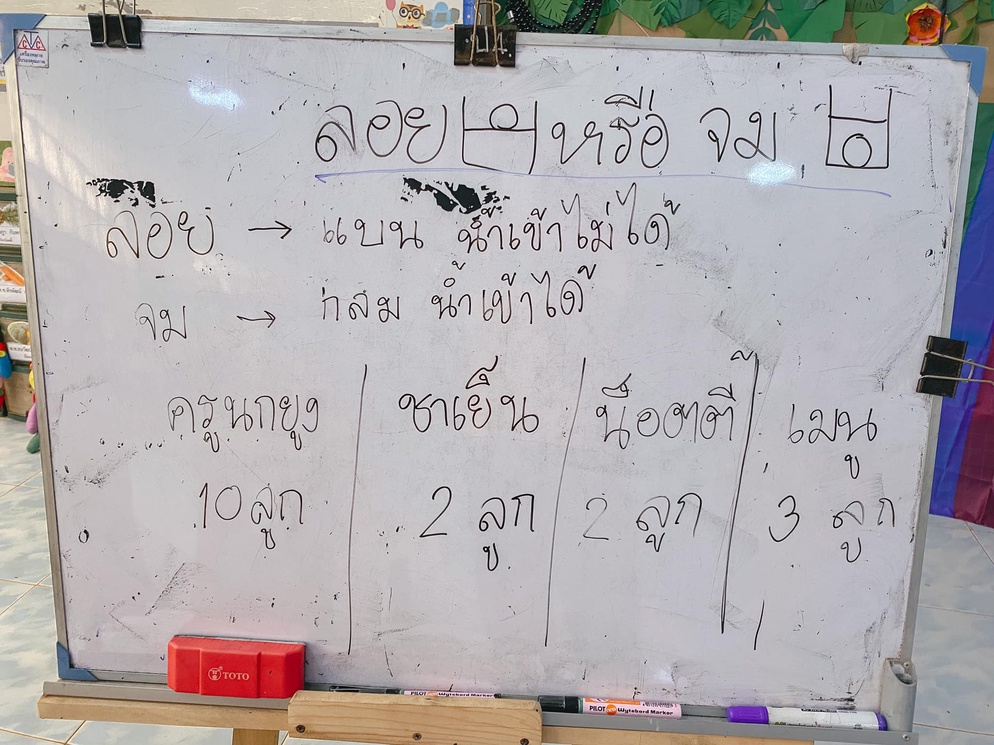 ลอย หรือ จม
ลอย → แบน น้ำเข้าไม่ได้
จม → กลม น้ำเข้าได้
ครูนกยูง ชาเย็น น็อตตี้ เมนู
10 ลูก 2 ลูก 2 ลูก 3 ลูก
TOTO
PILOT Wytebord Marker
PILOT Wytebord Marker